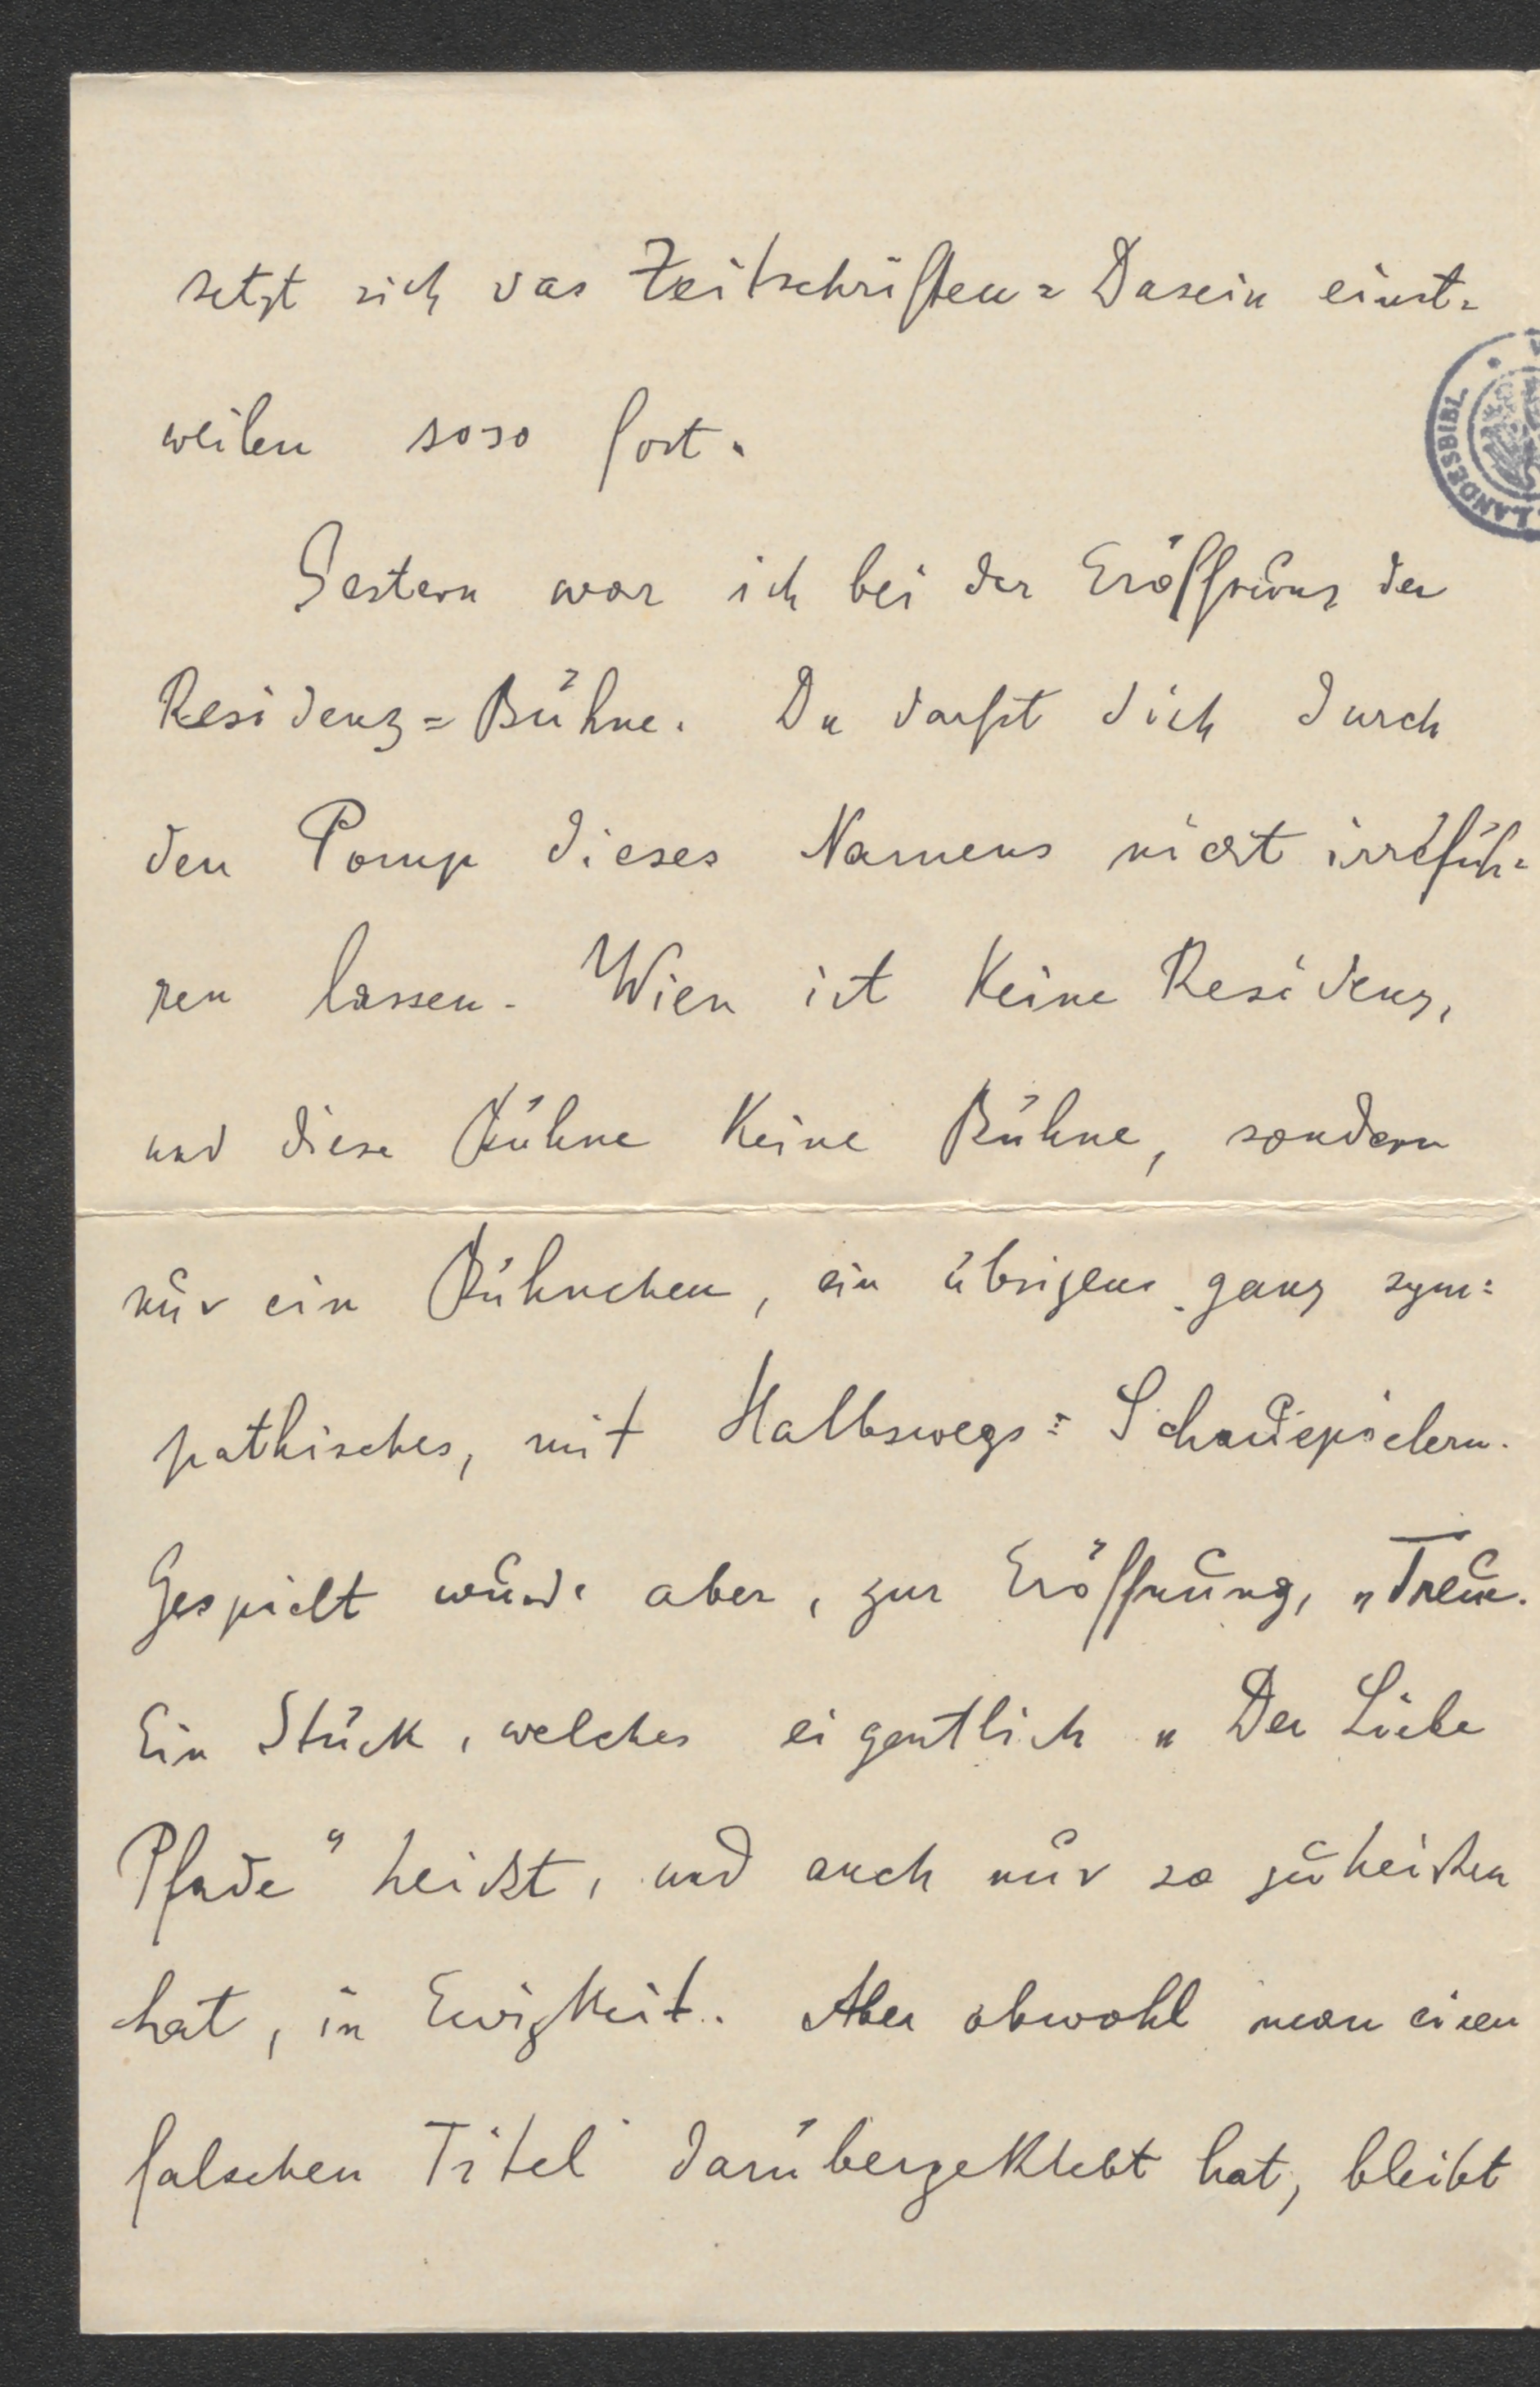 setzt sich das Zeitschriften=Dasein einst=
weilen soso fort.
LANDESBIBL.
Gestern war ich bei der Eröffnung der
Residenz=Bühne. Du darfst dich durch
den Pomp dieses Namens nicht irrefüh=
ren lassen. Wien ist keine Residenz,
und diese Bühne keine Bühne, sondern
nur ein Bühnchen, ein übrigens ganz sym=
pathisches, mit Halbswegs=Schauspielern.
Gespielt wurde aber, zur Eröffnung, „Treue.
Ein Stück, welches eigentlich „Der Liebe
Pfade“ heißt, und auch nur so zu heißen
hat, in Ewigkeit. Aber obwohl man einen
falschen Titel darübergeklebt hat, bleibt